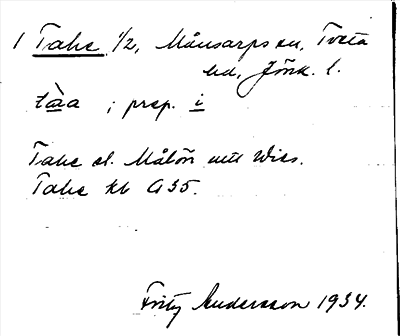 1 Tahe 1/2, Månsarps sn, Tveta
hd, Jönk. l.
tàa ; prep. i
Tahe el. Målön utt Wies.
Tahe kb G 35.
Fritz Andersson 1934.